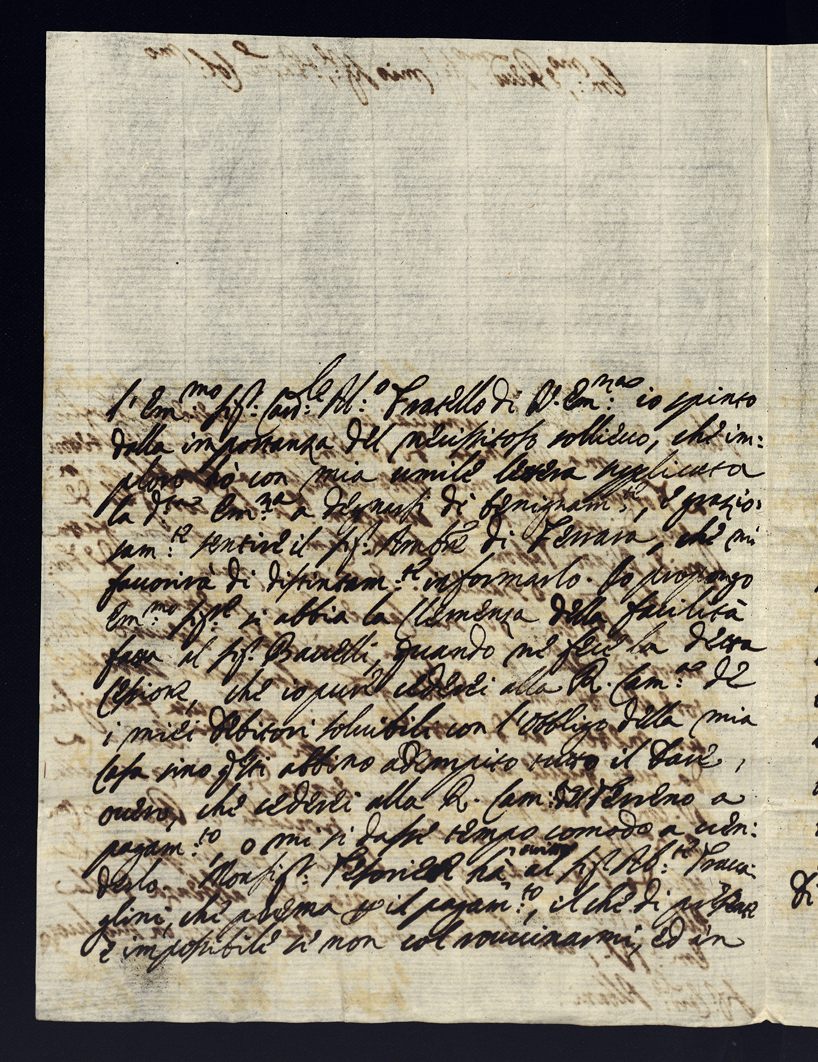 l'Em:mo Sig.r Card:le Al:o Fratello di V. Em:nza io spinto
dalla importanza del necessitoso sollievo, che im:
ploro hò con mia umile lettera supplicata
la d:ta Em:za a degnarsi di benignam:te, e grazio:
sam:te sentire il Sig.r Amb.re di Ferrara, che mi
favorirà di distintam:te informarlo. Io propongo
Em:mo Sig.re si abbia la Clemenza della facilità
fatta al Sig.r Bacelli, quando ne fece la detta
Cessione, che io pure cederei alla R. Cam:a de
i miei debitori solvibili con l'obbligo della mia
Casa sino q.sti abbino adempito tutto il dare,
overo, che cederei alla R. Cam: del Terreno a
pagam:to o mi si dasse tempo comodo a ven:
derlo. Monsig.r Tesoriere hà al Sig.r Ab:te
che prema p il pagam:to, il che di presente
è impossibile se non col rovvinarmi, ed in
Di